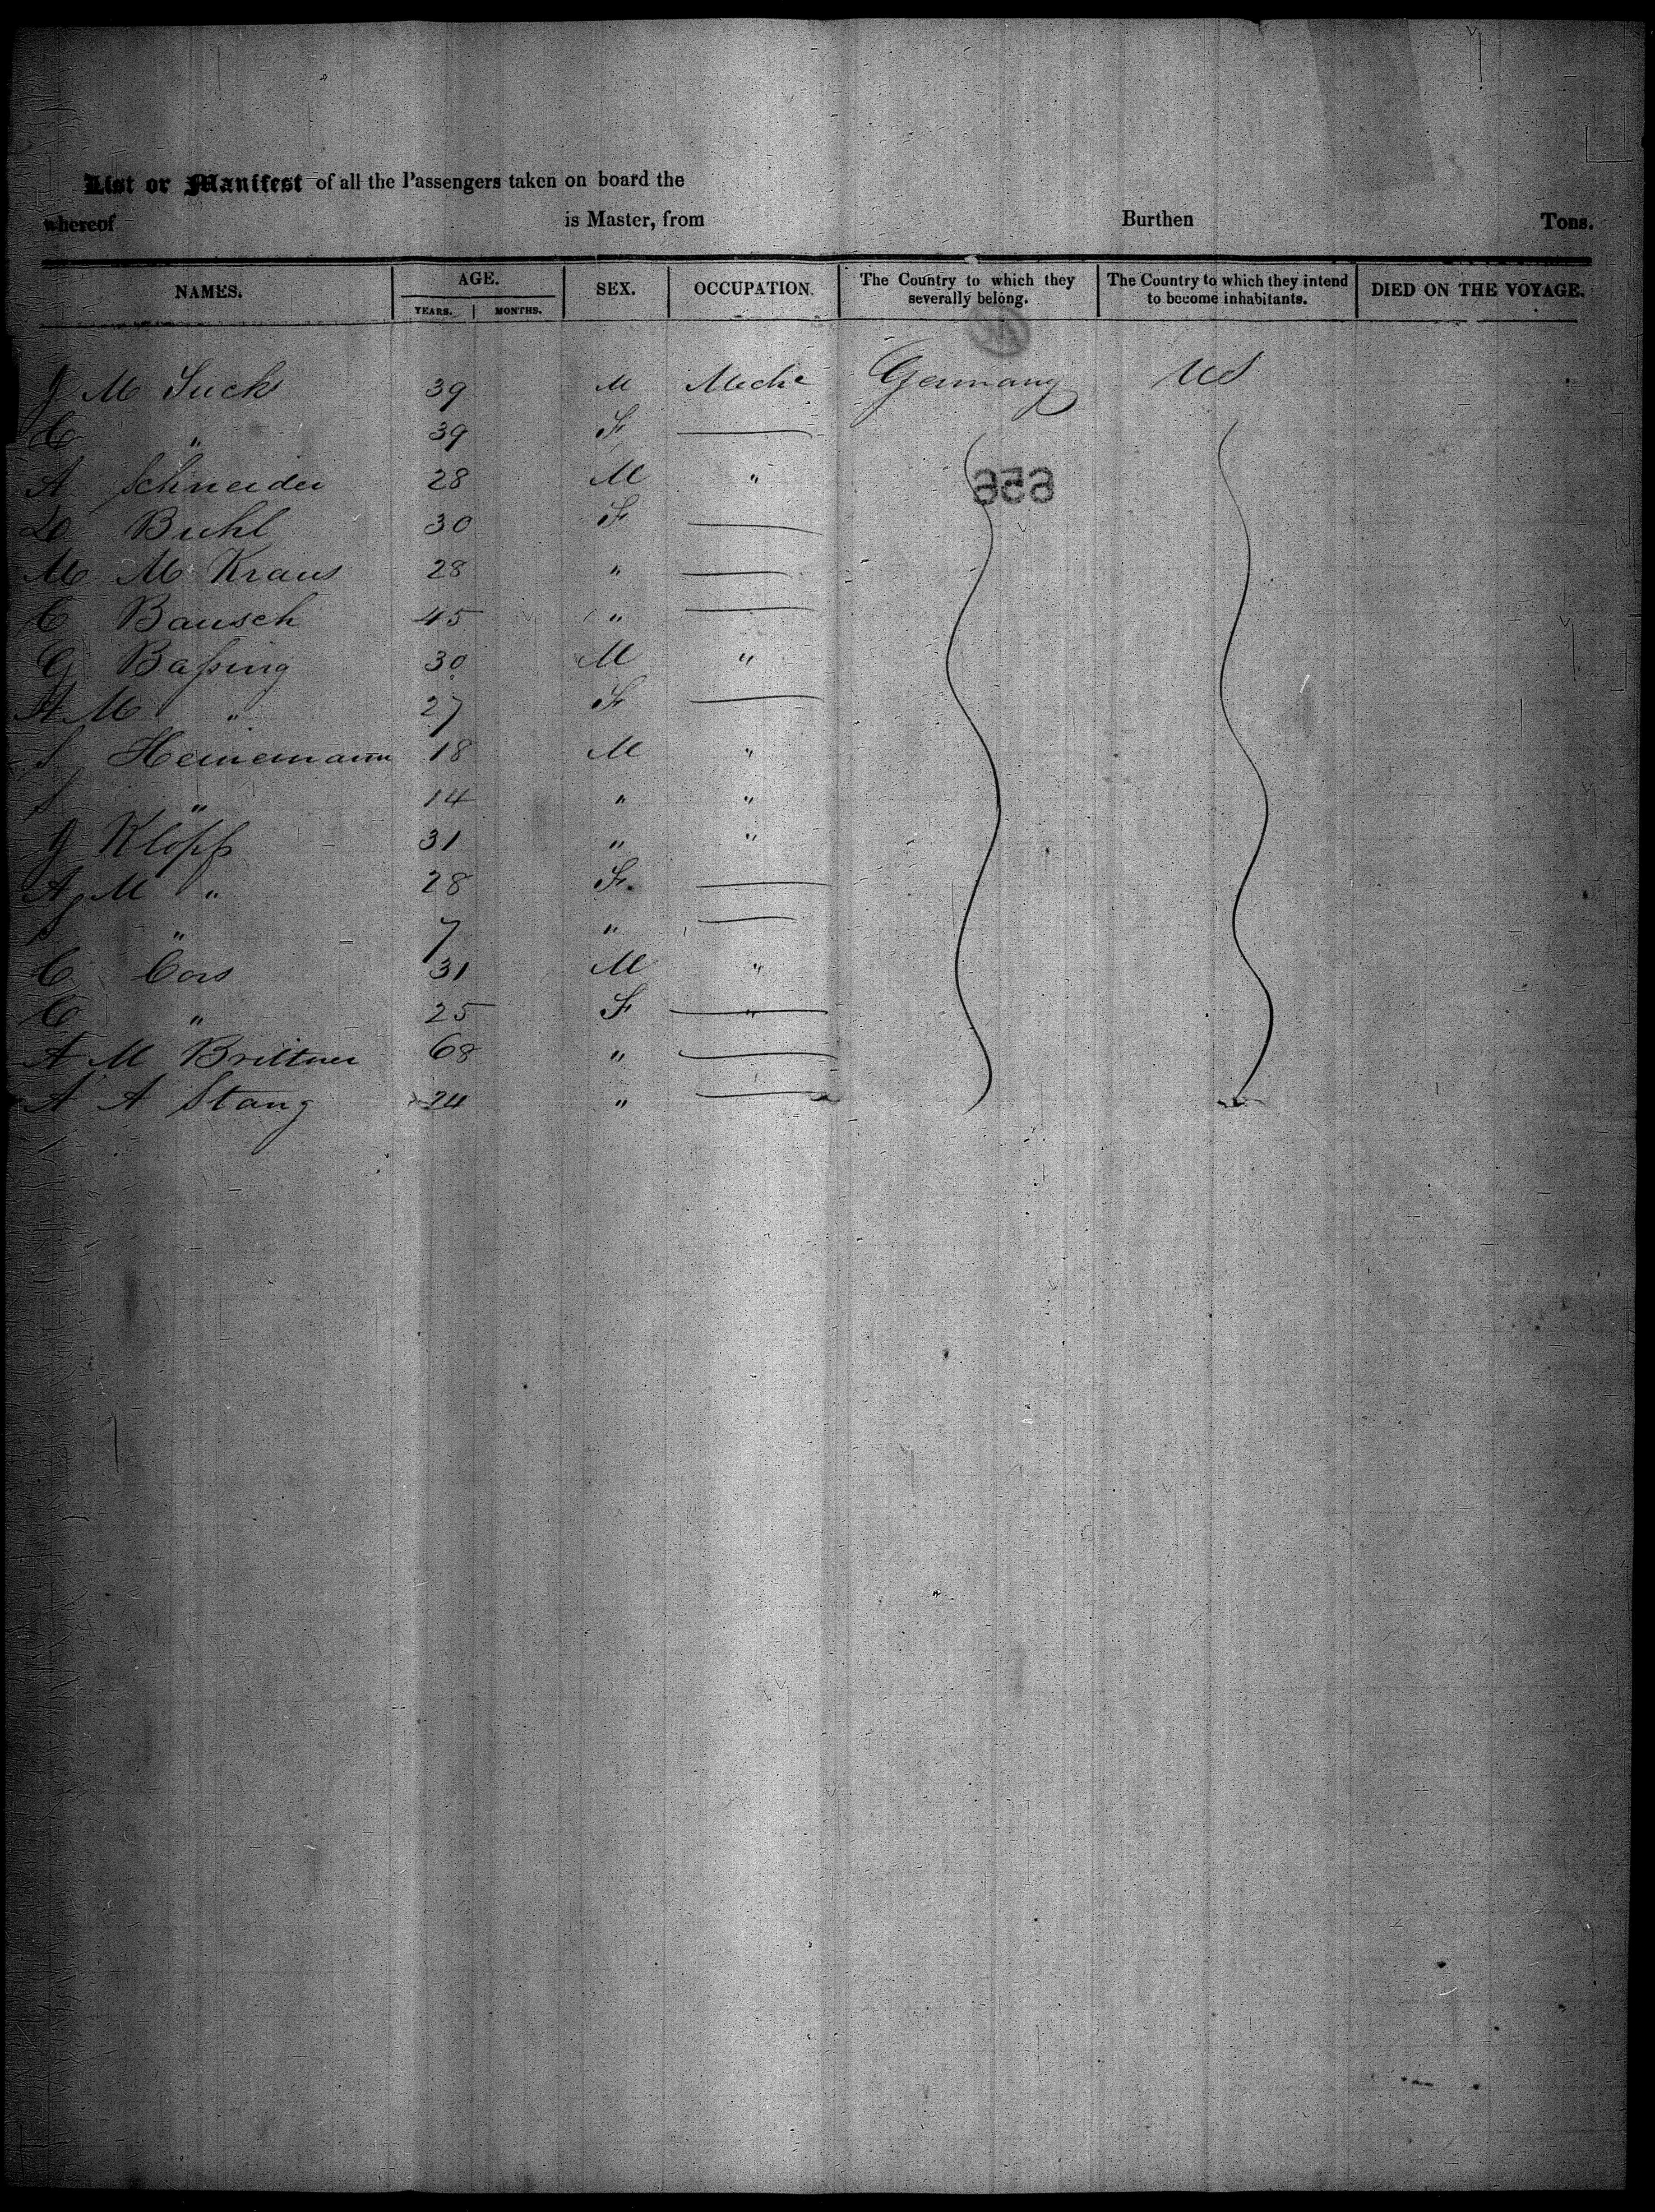 List or Manifest of all the Passengers taken on board the
whereof is Master, from Burthen Tons.
NAMES. AGE. SEX. OCCUPATION. The Country to which they severally belong. The Country to which they intend to become inhabitants. DIED ON THE VOYAGE.
YEARS. MONTHS.
J M Sucks 39 M Mechc Germany US
C " 39 F
A Schneider 28 M "
D Buhl 30 F
M M Kraus 28 "
C Bausch 45 "
G Baſsing 30 M "
A M " 27 F
S Heinemann 18 M "
S " 14 " "
J Klopf 31 " "
A M " 28 F
" 7 "
C Cors 31 M "
C " 25 F "
A M Brittner 68 "
A A Stang 24 "
656